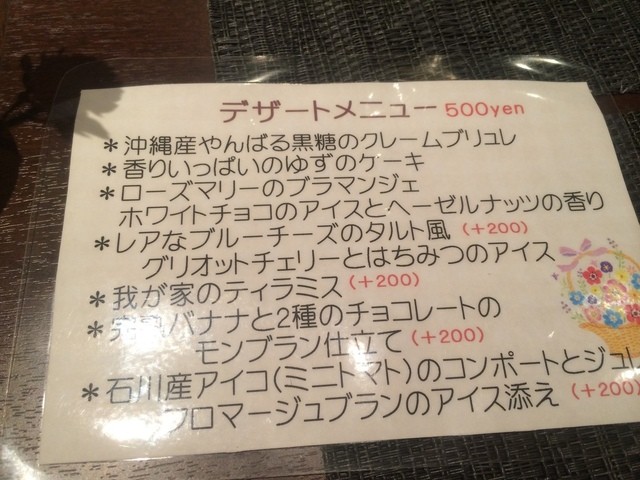 デザートメニュー 500yen
＊沖縄産やんばる黒糖のクレームブリュレ
＊香りいっぱいのゆずのケーキ
＊ローズマリーのブラマンジェ
ホワイトチョコのアイスとヘーゼルナッツの香り
＊レアなブルーチーズのタルト風 (+200)
グリオットチェリーとはちみつのアイス
＊我が家のティラミス (+200)
＊完熟バナナと2種のチョコレートの
モンブラン仕立て (+200)
＊石川産アイコ(ミニトマト)のコンポートとジュレ
フロマージュブランのアイス添え (+200)